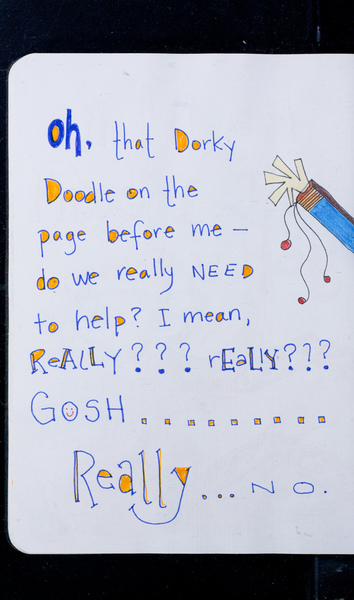 oh, that Dorky
Doodle on the
page before me –
do we really NEED
to help? I mean,
ReALLY??? rEaLlY???
GOSH .........
Really... NO.